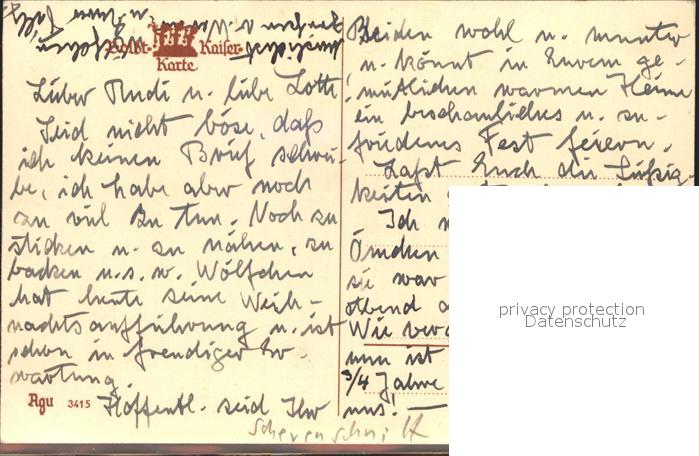 Lieber Rudi u. liebe Lotte
Seid nicht böse, daß
ich keinen Brief schrei-
be, ich habe aber noch
zu viel zu tun. Noch zu
sticken u. zu nähen, zu
backen u.s.w. Wölfchen
hat heute seine Weih-
nachtsaufführung u. ist
schon in freudiger Er-
wartung.
Hoffentl. seid Ihr
Beiden wohl u. munter
u. könnt in Eurem ge-
mütlichen warmen Heime
ein beschauliches u. zu-
friedenes Fest feiern.
Laßt Euch die Süßig-
keiten
Ich
Ömchen
sie war
Wie
nun ist
3/4 Jahre
uns! —
Kaiser-
Karte
Agu 3415
Scherenschnitt
privacy protection
Datenschutz